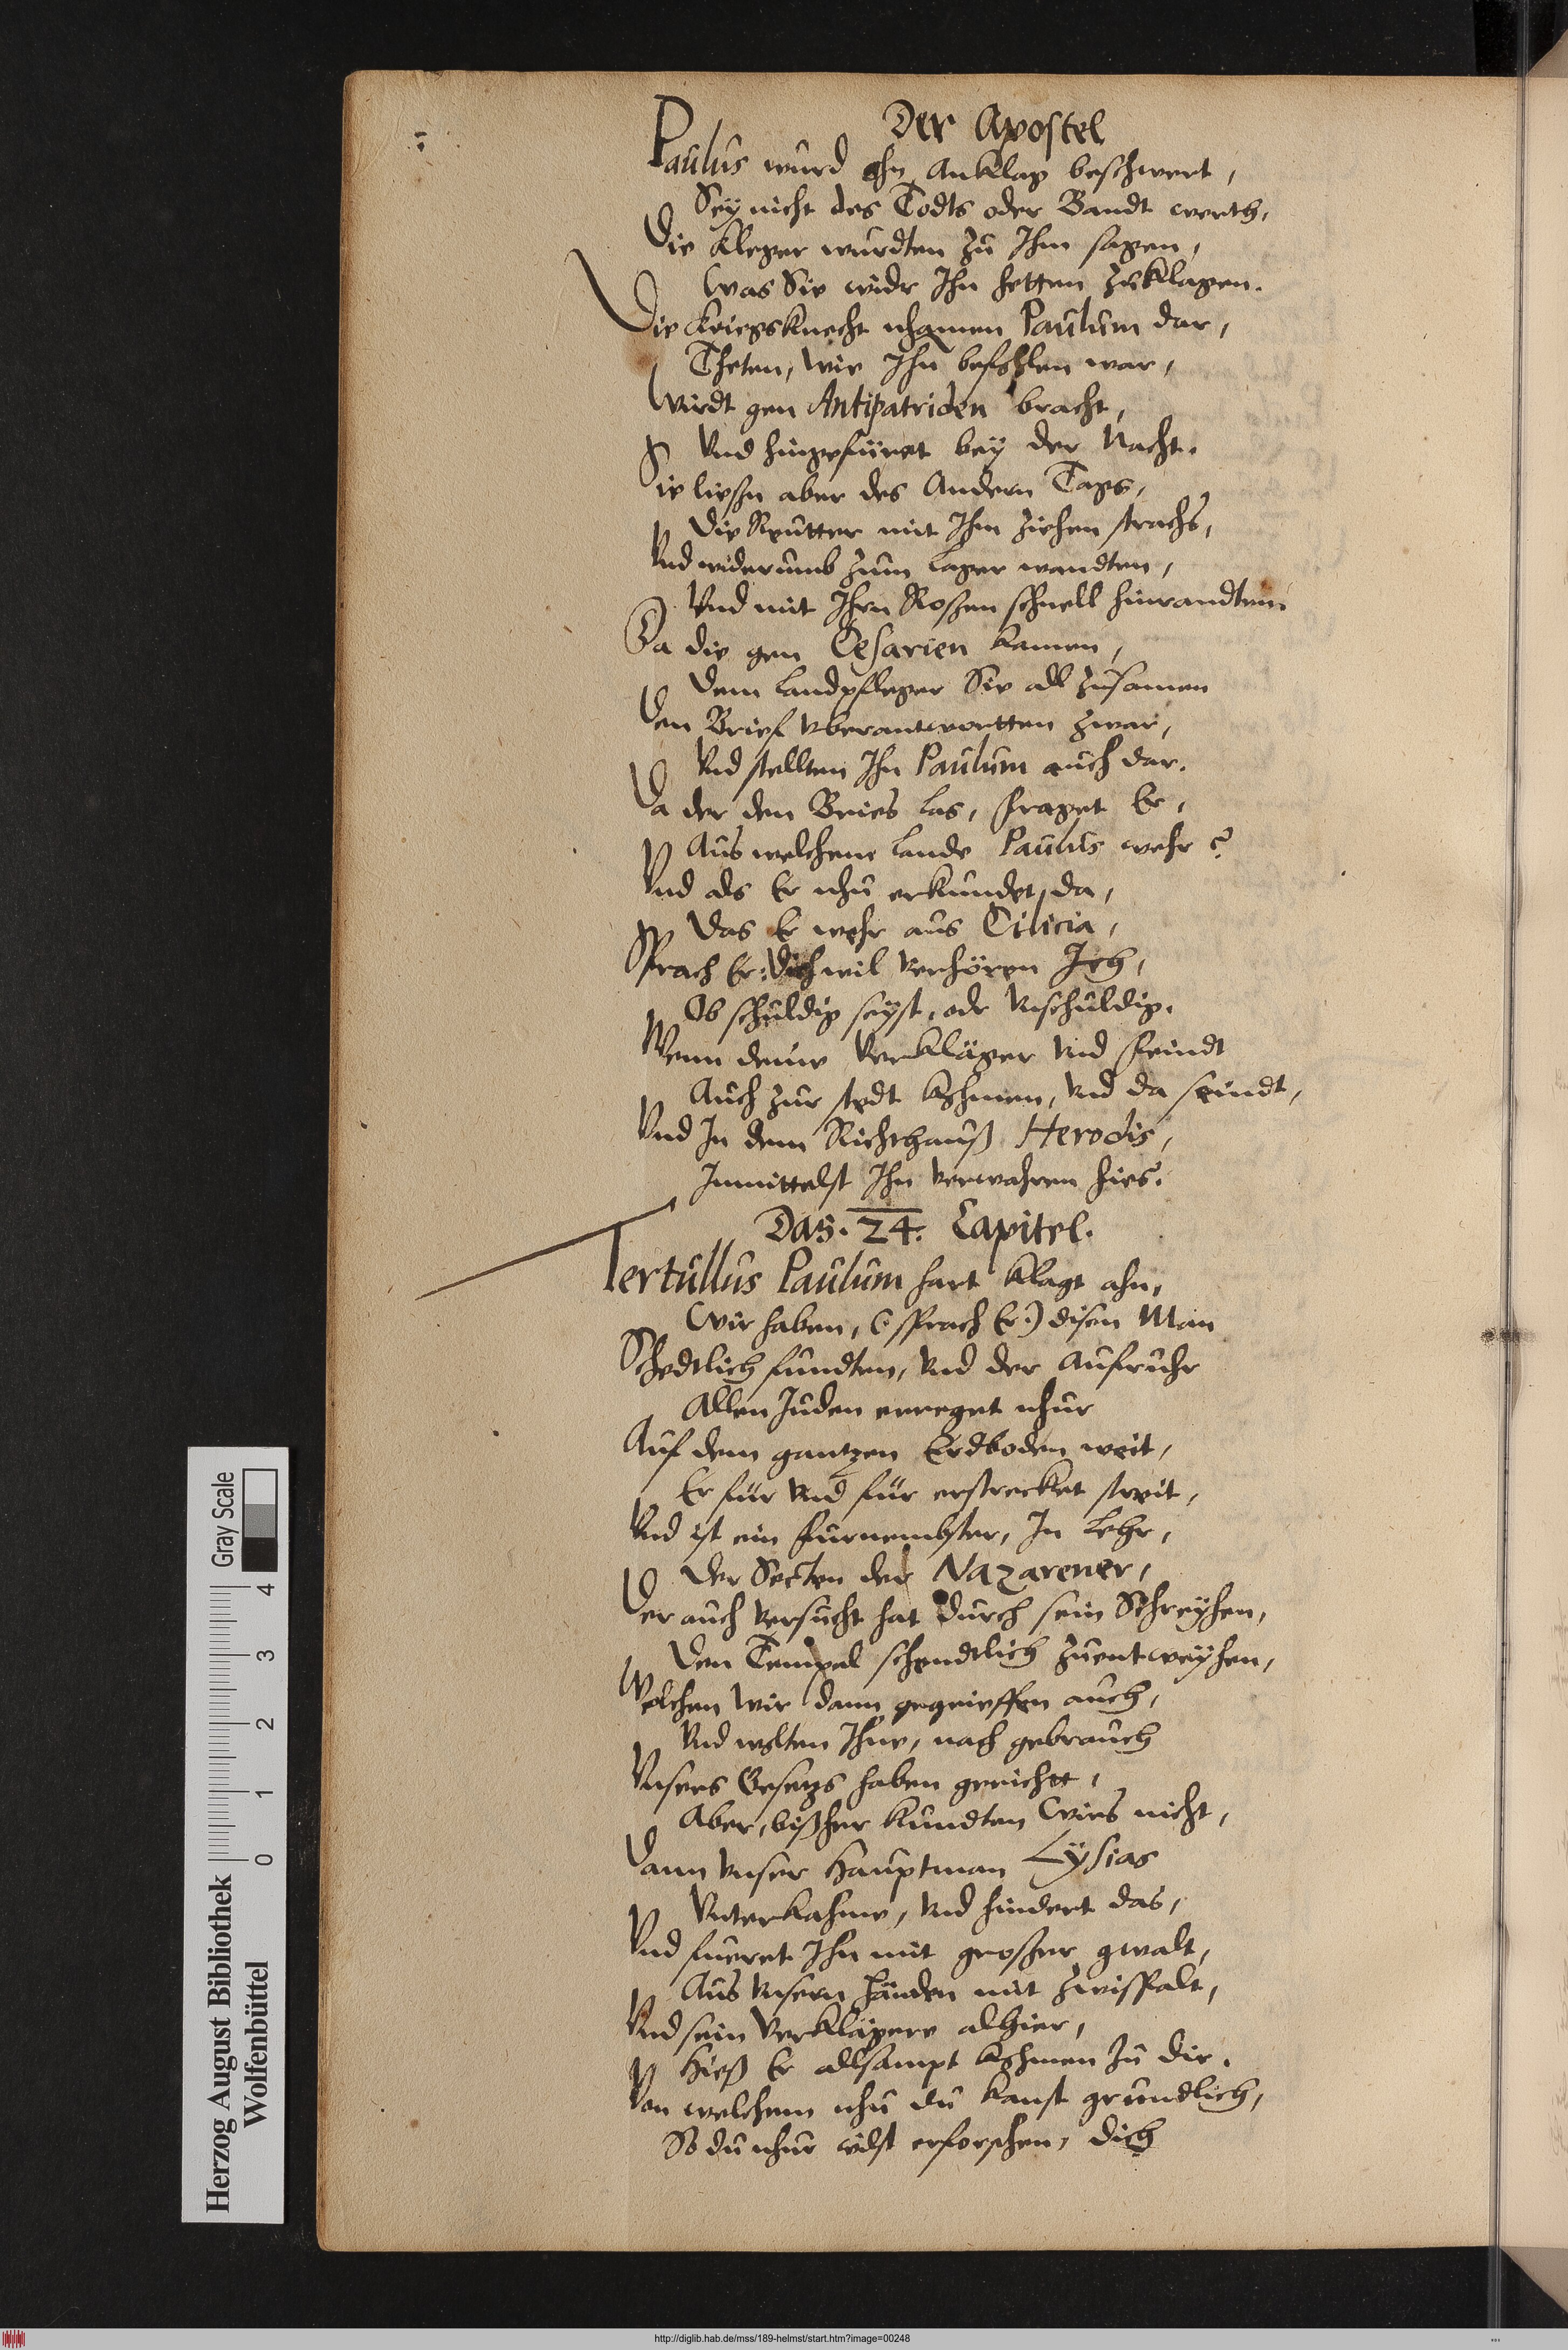 Der Apostel
Paulus wurd ohn Anklag beschwert,
Sey nicht des Todts oder Bandt werth,
Die Kleger wurdten zu Ihm sagen,
Was Sie widr Ihn hetten zuklagen.
Die Kriegsknecht nhamen Paulum dar,
Theten, wie Ihn befohlen war,
Wirdt gen Antipatriden bracht,
Vnd hingefüret bey der Nacht.
Sie liesn aber des Andern Tags,
Die Reutter mit Ihm ziehen strachs,
Vnd widerumb zum Lager wandten,
Vnd mit Ihrn Roßen schnell hinrandten
Da die gen Cesarien kamen,
Dem Landpfleger Sie all zusamen
Den Brief vberantwortten zwar,
Vnd stellten Ihn Paulum auch dar.
Da der den Brief las, fraget Er,
Aus welchem Lande Paulus wehr?
Vnd als Er nhu erkundet da,
Das Er wehr aus Cilicia,
Sprach Er: Dich wil verhören Ich,
Ob schuldig seyst, odr vnschuldig.
Wenn deine Verkläger vnd feindt
Auch zur stedt kohmen, vnd da seindt,
Vnd In dem Richthauß Herodis,
Inmittelst Ihn verwahren hies.
Das. 24. Capitel.
Tertullus Paulum hart klagt ahn,
Wir haben, (sprach Er) disen Man
Schedtlich fundten, vnd der Aufruhr
Allen Juden erreget nhur
Auf dem gantzen Erdboden weit,
Er für vnd für erstrecket streit,
Vnd ist ein furnembster, In Lehr,
Der Secten der Nazarener,
Der auch versucht hat durch sein Schreyhen,
Den Tempel schendtlich zuentweyhen,
Welchen wir dann gegrieffen auch,
Vnd wolten Ihne, nach gebrauch
Vnsers Gesetzs haben gericht,
Aber, bißher kundten Wirs nicht,
Dann vnser Hauptman Lysias
Vnterkahme, vnd hindert das,
Vnd fueret Ihn mit großer gwalt,
Aus vnsern händen mit zwispalt,
Vnd sein Verklägere alhier,
Hieß Er allsampt kohmen zu dir.
Von welchem nhu du kanst grundlich,
So du nhur wilst erforschen, dich
Herzog August Bibliothek
Wolfenbüttel
0 1 2 3 4
Gray Scale
http://diglib.hab.de/mss/189-helmst/start.htm?image=00248